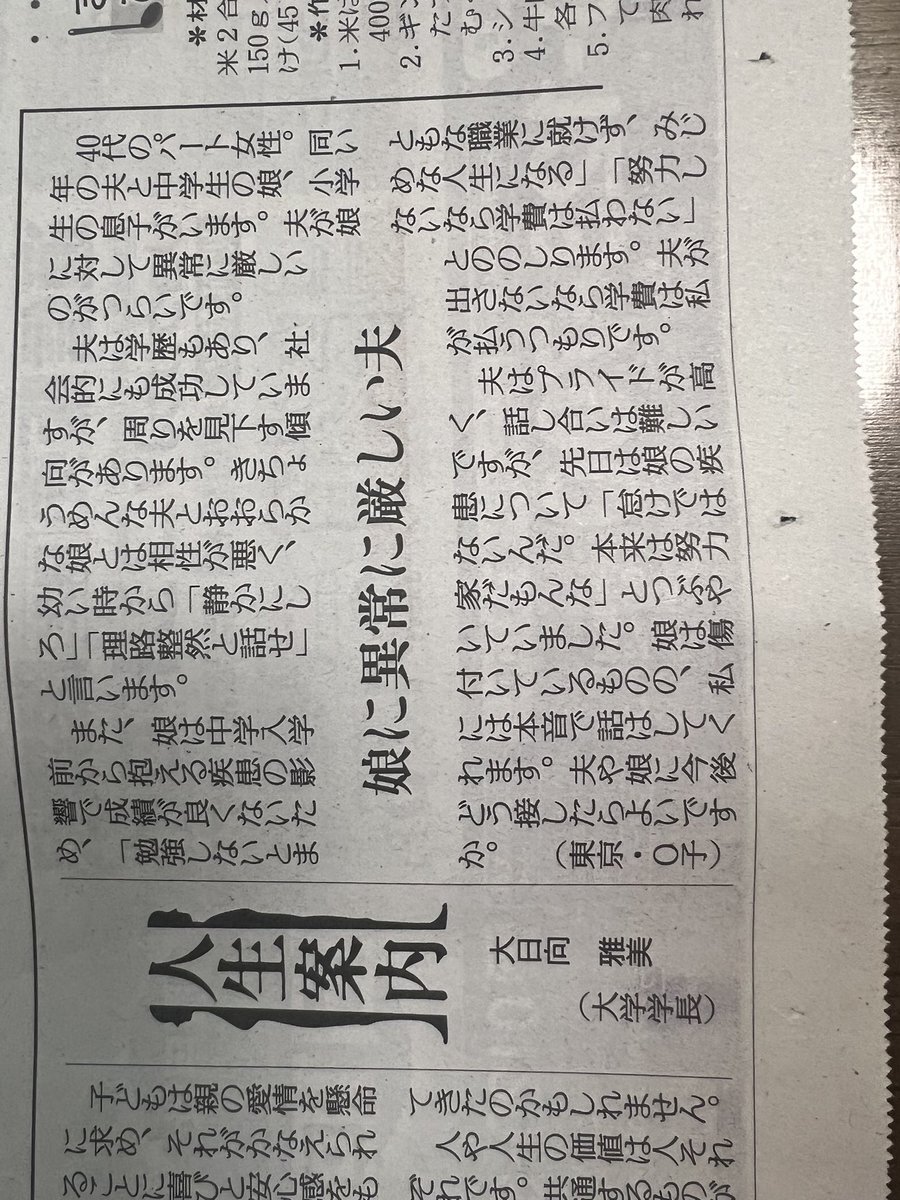 ＊材
米2合
150g
け(45
＊作
1.米は
400
2.ギン
3.シ
4.牛
各
5.フ
て
肉
れ
娘に異常に厳しい夫
40代のパート女性。同い
年の夫と中学生の娘、小学
生の息子がいます。夫が娘
に対して異常に厳しい
のがつらいです。
夫は学歴もあり、社
会的にも成功していま
すが、周りを見下す傾
向があります。きちょ
うめんな夫とおおらか
な娘とは相性が悪く、
幼い時から「静かにし
ろ」「理路整然と話せ」
と言います。
また、娘は中学入学
前から抱える疾患の影
響で成績が良くないた
め、「勉強しないとま
ともな職業に就けず、みじ
めな人生になる」「努力し
ないなら学費は払わない」
とののしります。夫が
出さないなら学費は私
が払うつもりです。
夫はプライドが高
く、話し合いは難しい
ですが、先日は娘の疾
患について「怠けでは
ないんだ。本来は努力
家だもんな」とつぶや
いていました。娘は傷
付いているものの、私
には本音で話はしてく
れます。夫や娘に今後
どう接したらよいです
か。　(東京・O子)
人生案内
大日向 雅美
(大学学長)
子どもは親の愛情を懸命
に求め、それがかなえられ
ることに喜びと安心感をも
てきたのかもしれません。
人や人生の価値は人それ
ぞれです。共通するものが